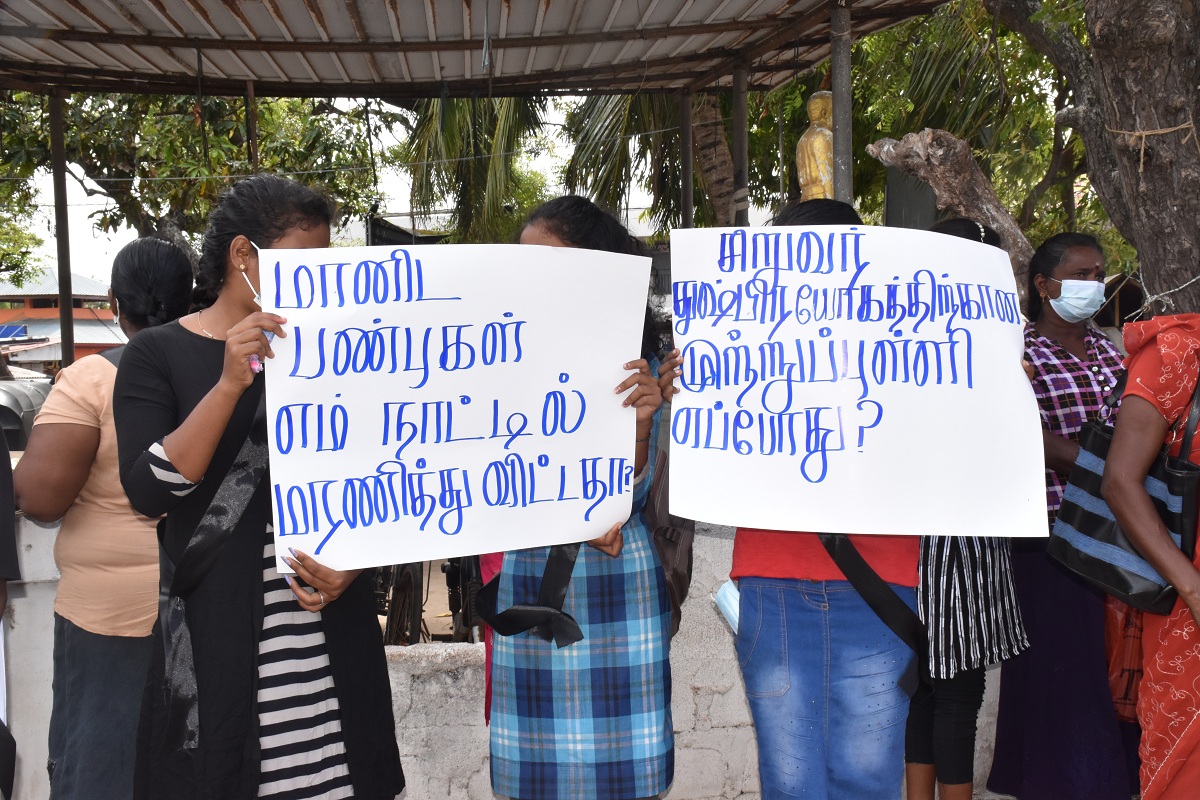 மாணிட
பண்புகள்
எம் நாட்டில்
மரணித்து விட்டதா?
சிறுவர்
துஷ்பிரயோகத்திற்கான
முற்றுப்புள்ளி
எப்போது?